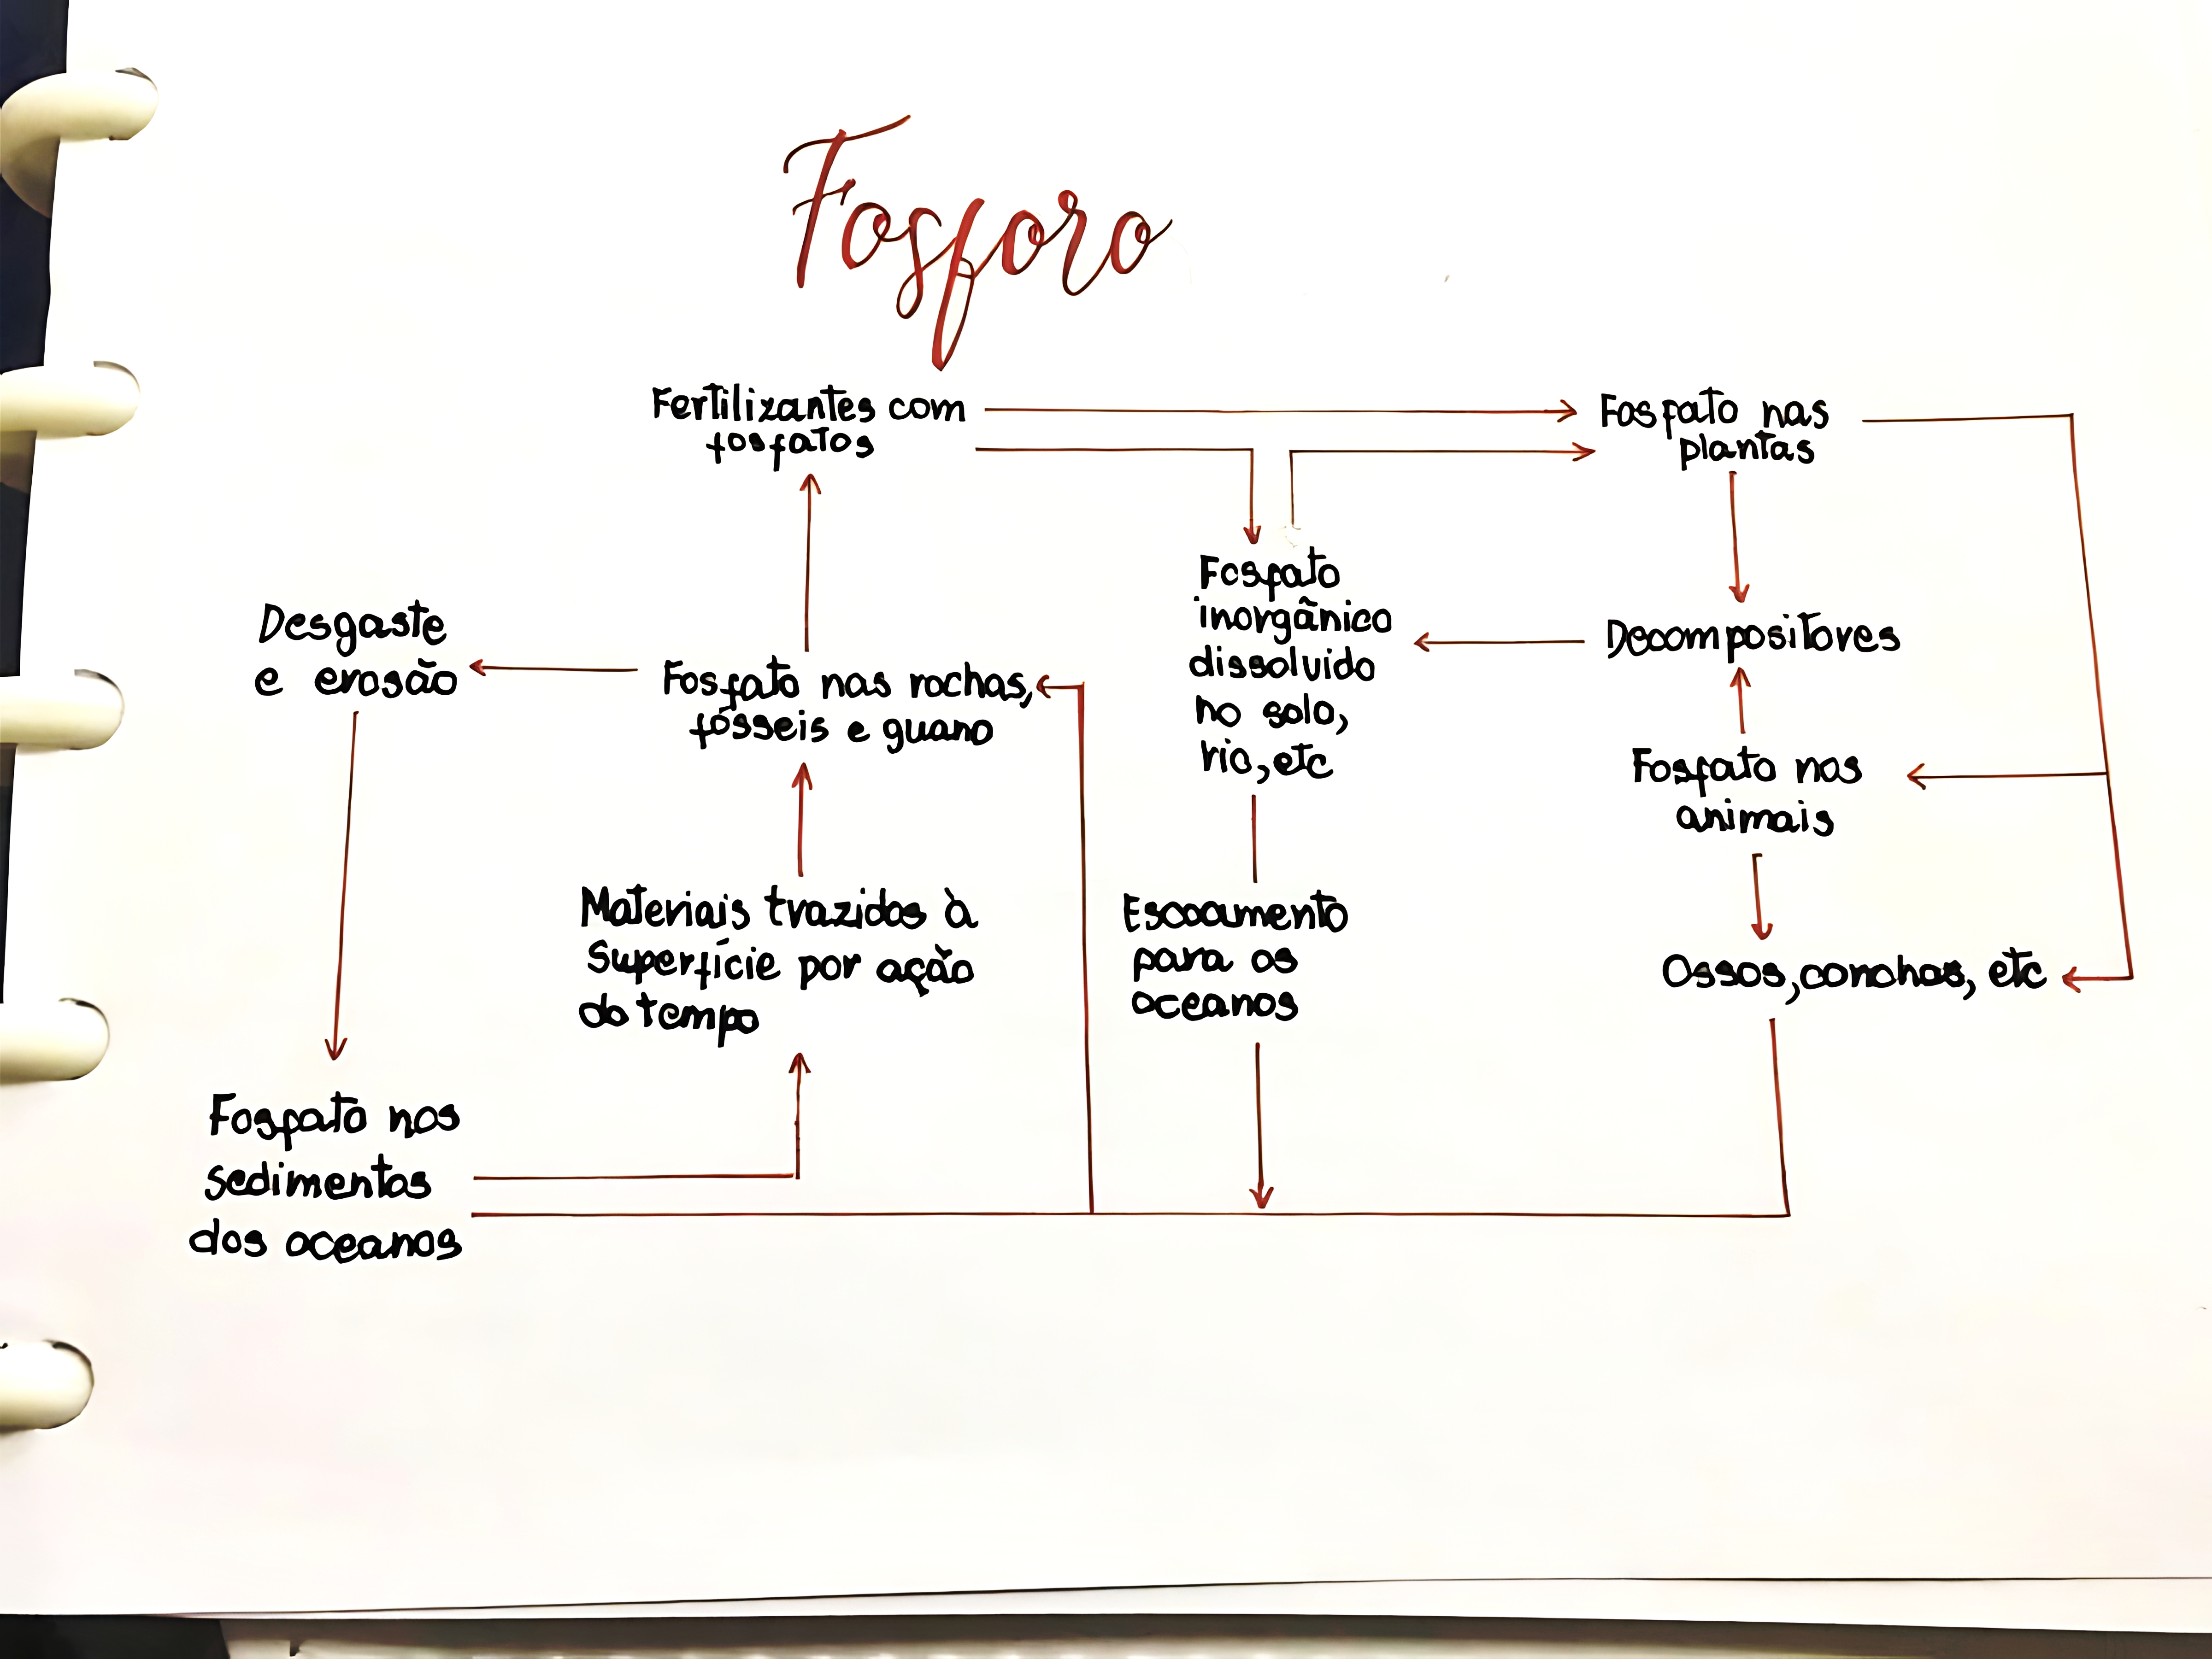 Fosforo
Fertilizantes com
fosfatos
Fosfato nas
plantas
Fosfato
inorgânico
dissolvido
no solo,
rio, etc
Desgaste
e erosão
Decompositores
Fosfato nas rochas,
fósseis e guano
Fosfato nos
animais
Materiais trazidos à
Superfície por ação
do tempo
Escoamento
para os
oceanos
Ossos, conchas, etc
Fosfato nos
sedimentos
dos oceanos